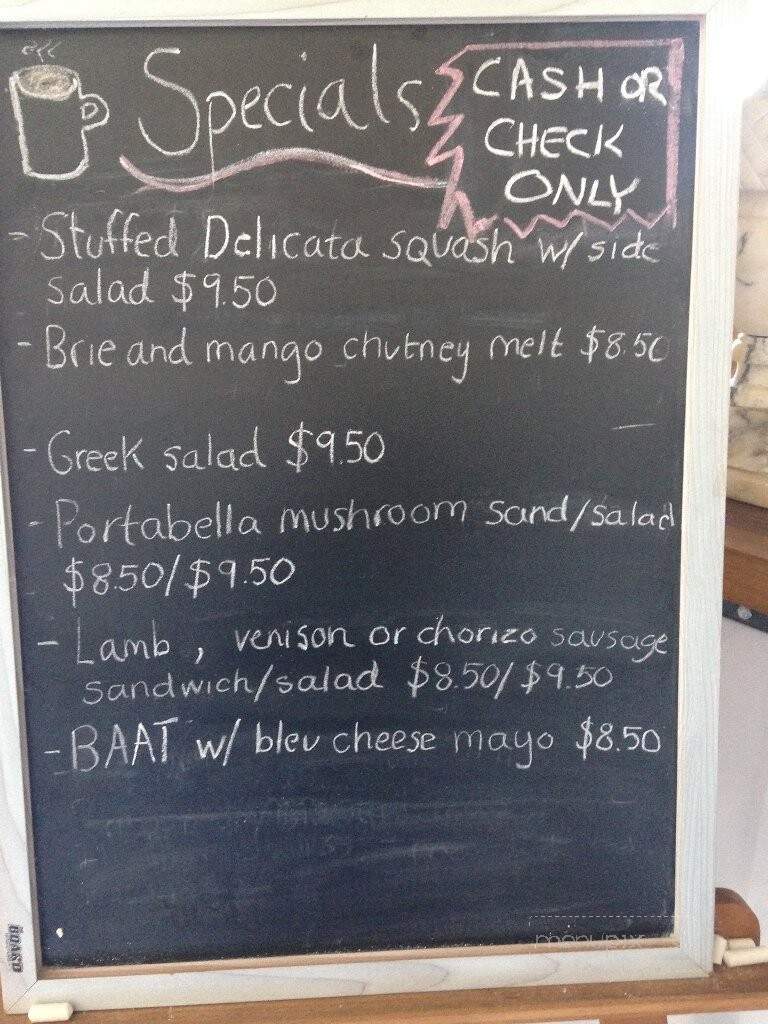 Specials
CASH OR
CHECK
ONLY
- Stuffed Delicata squash w/ side
salad $9.50
- Brie and mango chutney melt $8.50
- Greek salad $9.50
- Portabella mushroom sand/salad
$8.50/$9.50
- Lamb, venison or chorizo sausage
sandwich/salad $8.50/$9.50
- BAAT w/ bleu cheese mayo $8.50
menupix
BOARD